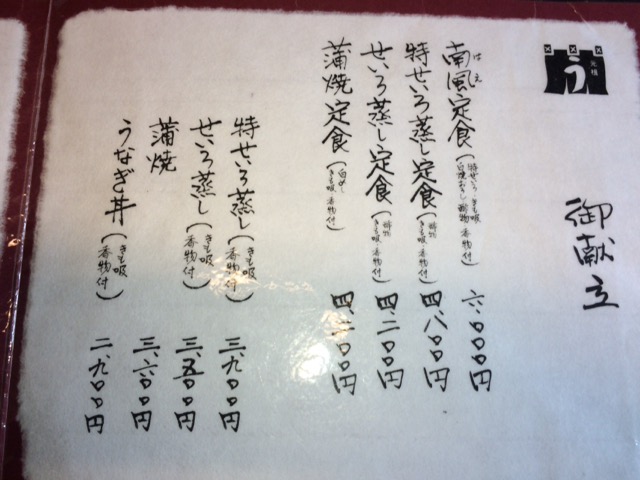 う
元祖
御献立
南風定食(特せいろ・きも吸 白焼おろし・酢物 香物付) 六、〇〇〇円
はえ
特せいろ蒸し定食(酢物 きも吸 香物付) 四、八〇〇円
せいろ蒸し定食(酢物 きも吸 香物付) 四、二〇〇円
蒲焼定食(白めし きも吸 香物付) 四、二〇〇円
特せいろ蒸し(きも吸 香物付) 三、九〇〇円
せいろ蒸し(きも吸 香物付) 三、五〇〇円
蒲焼 三、六〇〇円
うなぎ丼(きも吸 香物付) 二、九〇〇円